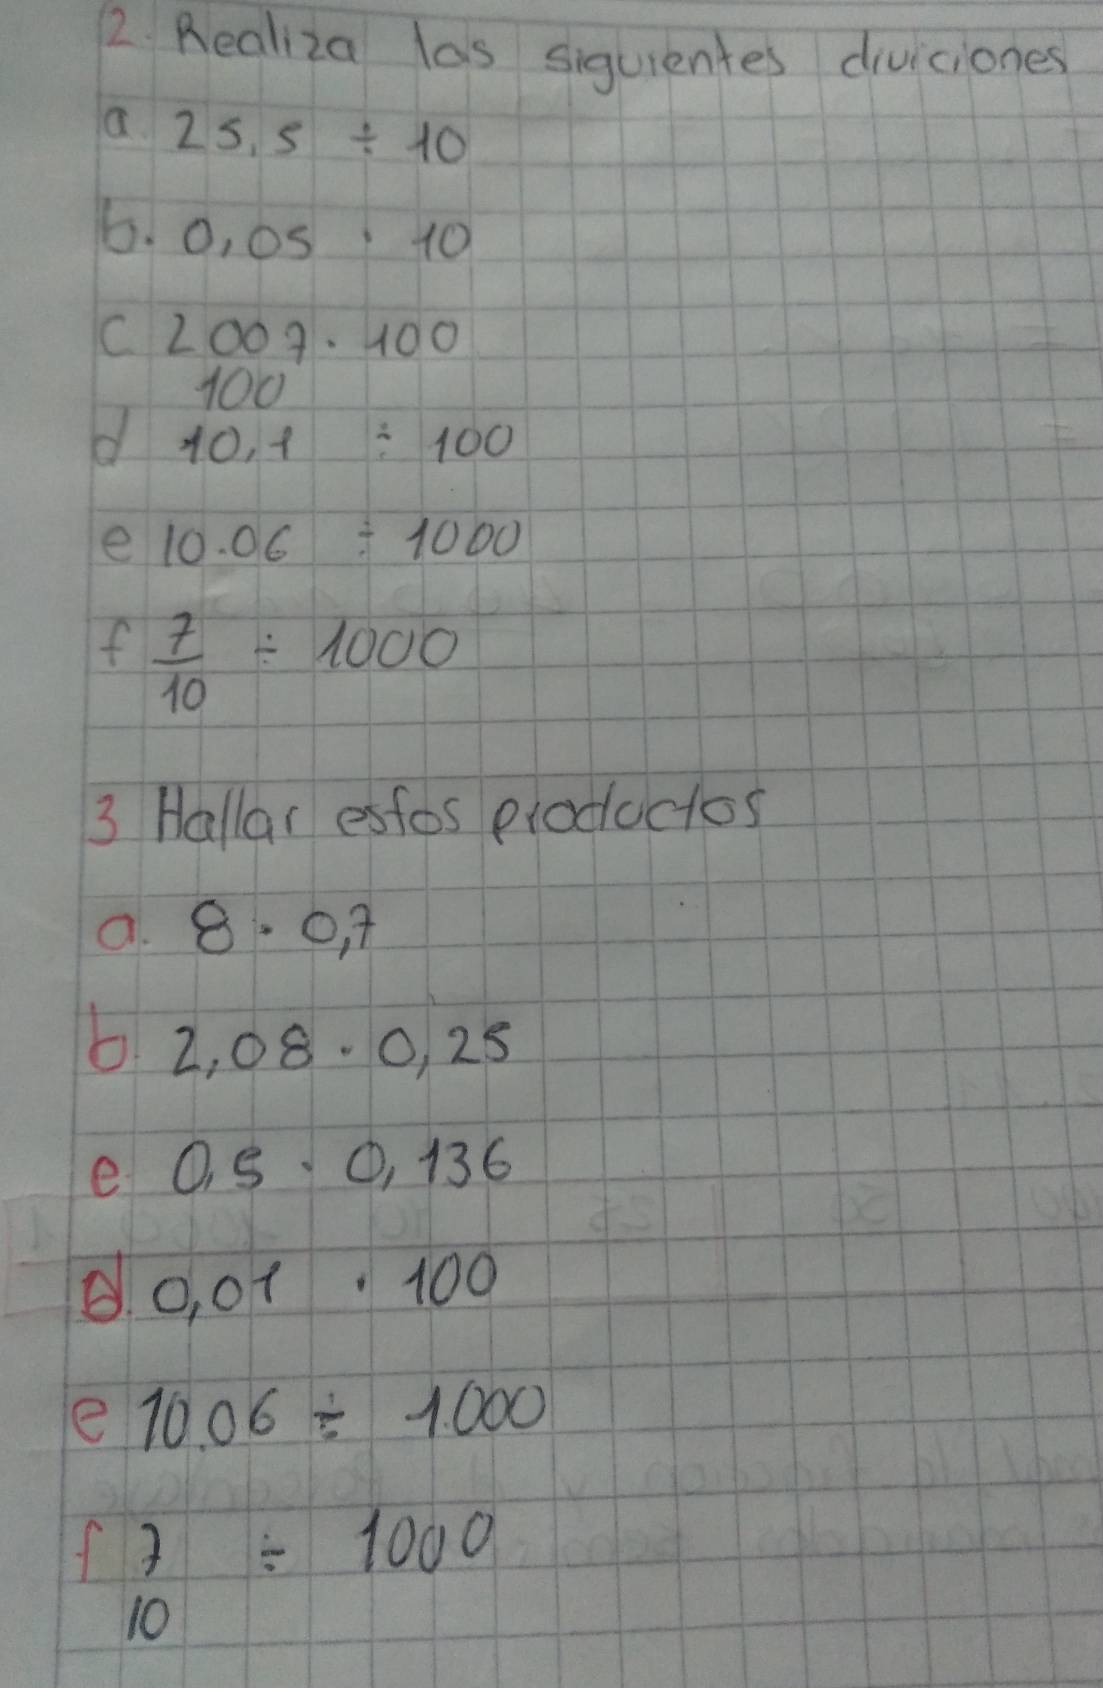 2. Realiza las siguientes diviciones
a. 25,5 ÷ 10
b. 0,05 · 10
c 2007 · 100
100
d 10,1 ÷ 100
e 10.06 ÷ 1000
f 7 ÷ 1000
10
3 Hallar estos productos
a. 8 · 0,7
b. 2,08 · 0,25
e. 0,5 · 0,136
d. 0,01 · 100
e 10.06 ÷ 1.000
f 7 ÷ 1000
10